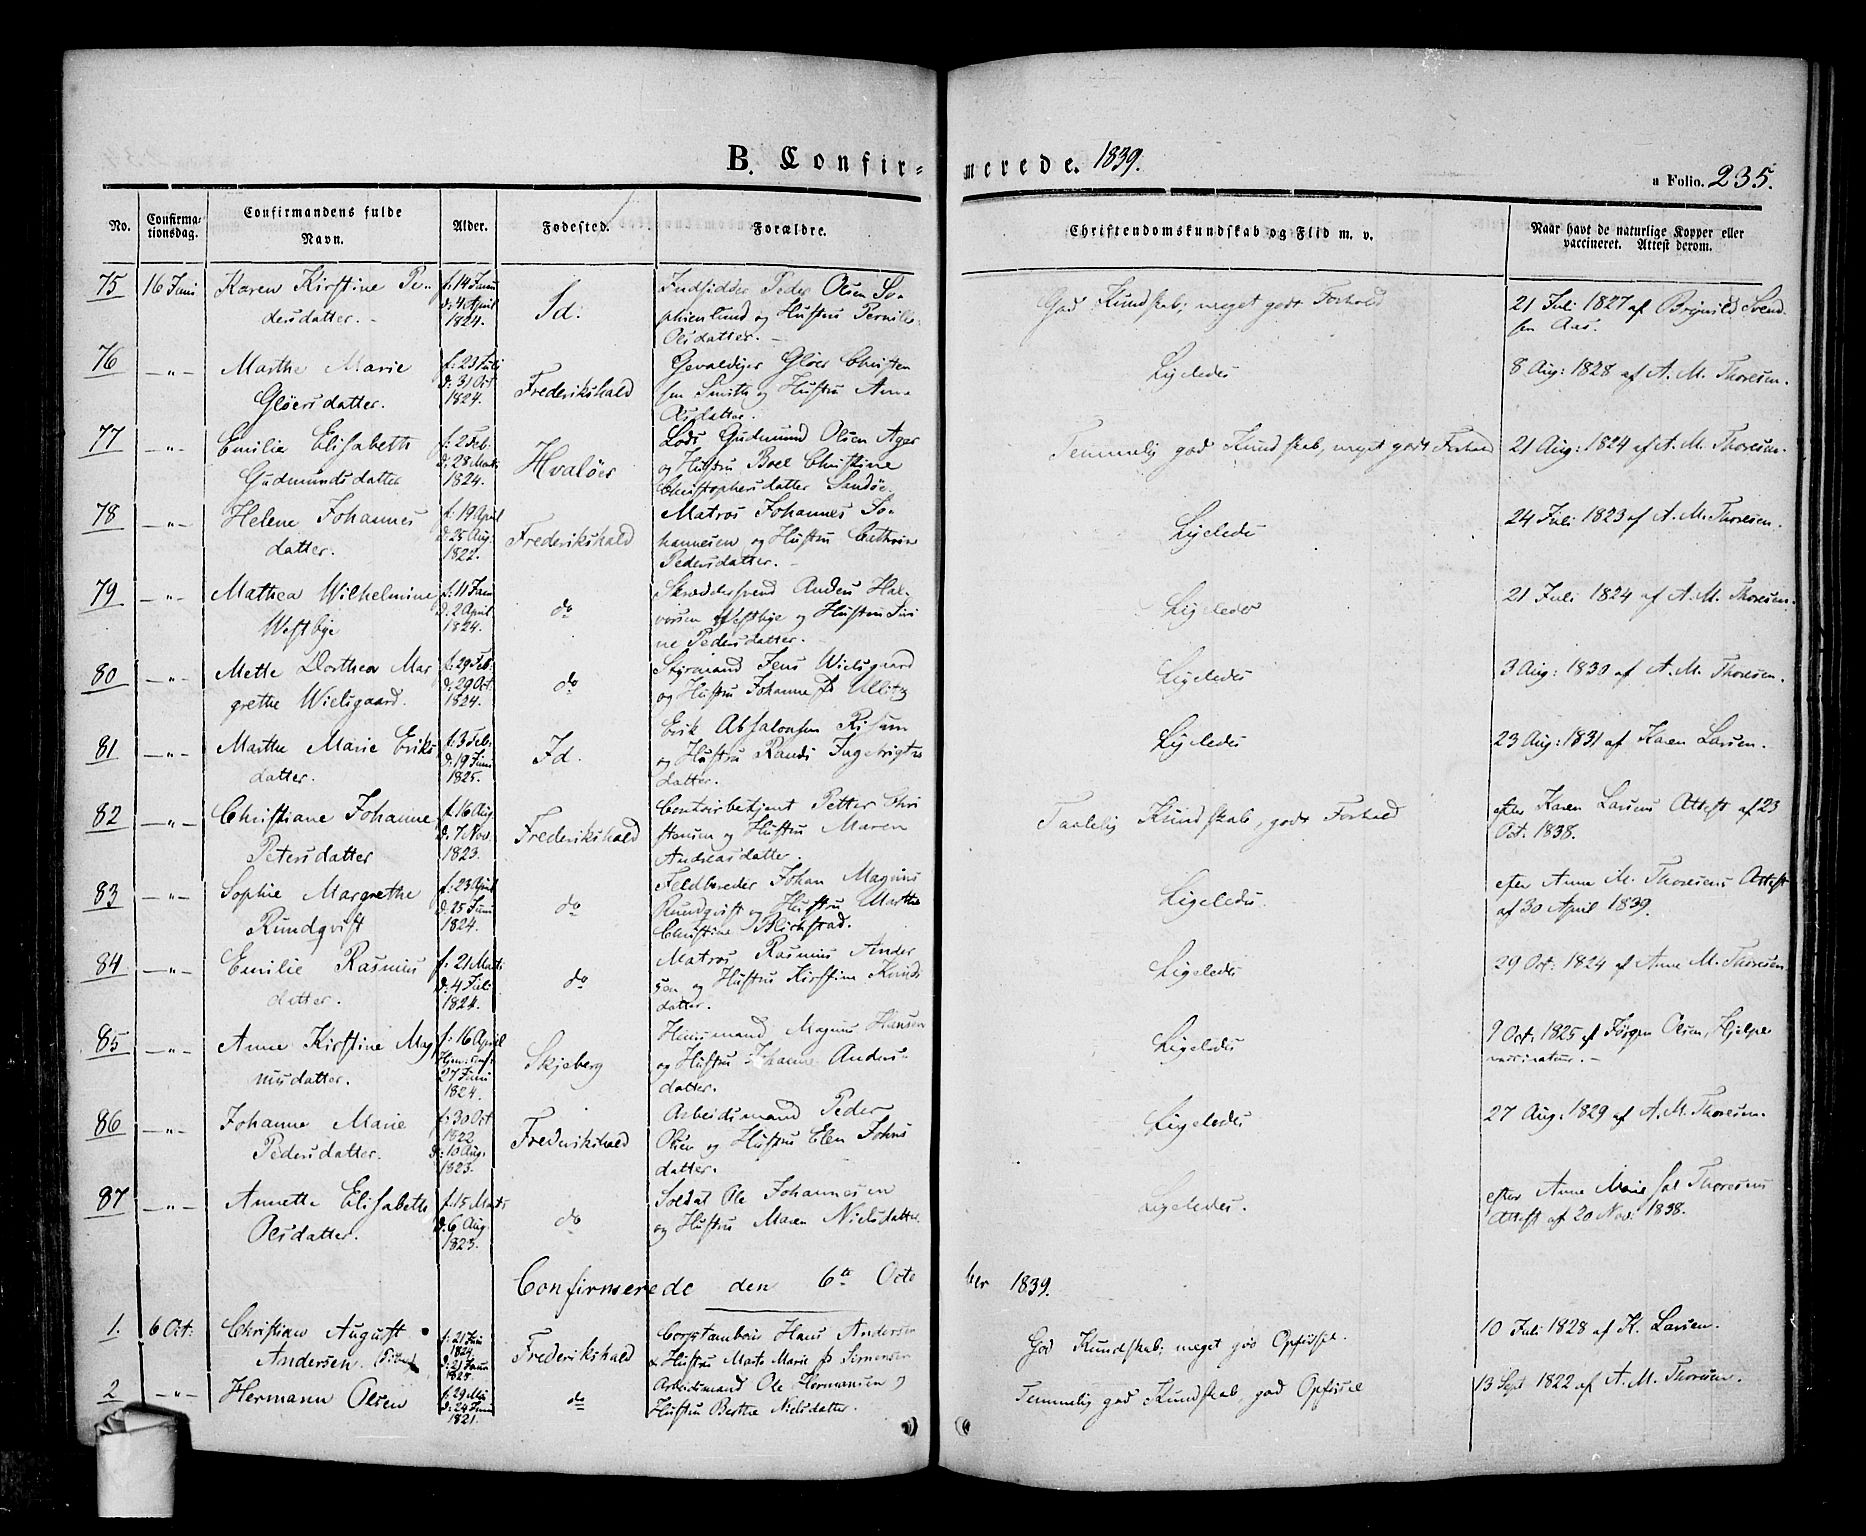 B. Confir=merede. 1839.
a Folio. 235.
No. Confirma-tionsdag. Confirmandens fulde Navn. Alder. Fødested. Forældre. Christendomskundskab og Flid m. v. Naar havt de naturlige Kopper eller vaccineret. Attest derom.
75 16 Juni Karen Kirstine Pe-
dersdatter.
f: 14 Juni
d: 4 April
1824.
Id:
Indsidder Peder Olsen So-
phienlund og Hustru Pernille
Olsdatter.
God Kundskab; meget godt Forhold
21 Juli 1827 af Brynild Svend-
sen Aas.
76 —"— Marthe Marie
Gløersdatter.
f: 23 Juli
d: 31 Oct
1824.
Frederikshald
Gevaldiger Gløer Christen
sen Smith og Hustru Anne
Olsdatter.
Ligeledes
8 Aug: 1828 af A. M. Thoresen.
77 —"— Emilie Elisabeth
Gudmundsdatter
f: 2 Feb:
d: 28 Marts
1824.
Hvaløer
Lods Gudmund Olsen Ager
og Hustru Boel Christine
Christophersdatter Sandøe.
Temmelig god Kundskab, meget godt Forhold
21 Aug: 1824 af A. M. Thoresen.
78 —"— Helene Johannes
datter.
f: 19 April
d: 25 Aug.
1822.
Frederikshald
Matros Johannes Jo-
hannesen og Hustru Cathrine
Pedersdatter.
Ligeledes
24 Juli 1823 af A. M. Thoresen.
79 —"— Mathea Wilhelmine
Westbye
f: 11 Jan
d: 2 April
1824.
do
Skræddersvend Anders Hal-
vorsen Westbye og Hustru Siri
ne Pedersdatter.
Ligeledes
21 Juli 1824 af A. M. Thoresen.
80 —"— Mette Dorthea Mar
grethe Wielsgaard.
f: 29 Feb:
d: 29 Oct.
1824.
do
Styrmand Jens Wielsgaard
og Hustru Johanne f. Ullitz
Ligeledes
3 Aug: 1830 af A. M. Thoresen.
81 —"— Marthe Marie Eriks
datter.
f: 3 Feb:
d: 19 Juni
1825.
Id.
Erik Absalonsen Risum
og Hustru Randi Ingebrigts
datter.
Ligeledes
23 Aug: 1831 af Karen Larsen.
82 —"— Christiane Johanne
Petersdatter
f: 16 Aug
d: 7 Nov.
1823.
Frederikshald
Contoirbetjent Petter Chri
stensen og Hustru Maren
Andreasdatter.
Taalelig Kundskab, godt Forhold
efter Karen Larsens Attest af 23
Oct. 1838.
83 —"— Sophie Margrethe
Rundqvist
f: 23 April
d: 25 Juni
1824.
do
Feldbereder Johan Magnus
Rundqvist og Hustru Marthe
Christine Blichstad.
Ligeledes.
efter Anne M. Thoresens Attest
af 30 April 1839.
84 —"— Emilie Rasmus
datter.
f: 21 Marts
d: 4 Juli
1824.
do
Matros Rasmus Ander
sen og Hustru Kirstine Knuds
datter.
Ligeledes
29 Oct: 1824 af Anne M. Thoresen
85 —"— Anne Kirstine Mag
nusdatter.
f: 16 April
Hjem:
27 Juni
1824.
Skjeberg
Huusmand Magnus Hansen
og Hustru Johanne Anders-
datter.
Ligeledes
9 Oct. 1825 af Jørgen Olsen, Hjelpe
vaccinateur.
86 —"— Johanne Marie
Pedersdatter.
f: 30 Oct
1822
d: 10 Aug.
1823.
Frederikshald
Arbeidsmand Peder
Olsen og Hustru Elen Johns
datter.
Ligeledes
27 Aug: 1829 af A. M. Thoresen.
87 —"— Annette Elisabeth
Olsdatter.
f: 15 Marts
d: 6 Aug.
1823.
do
Soldat Ole Johannesen
og Hustru Maren Nielsdatter.
Ligeledes.
efter Anne Marie sal Thoresens
Attest af 20 Nov: 1838.
Confirmerede den 6te Octo ber 1839.
1. 6 Oct: Christian August
Andersen.
f: 21 Juni
1824.
d: 21 Januar
1825.
Frederikshald
Hans Andersen
& Hustru Marte Marie f. Simensen
God Kundskab; meget god Opførsel.
10 Juli 1828 af K. Larsen.
2 —"— Hermann Olsen
f: 29 Mai
d: 24 Juni
1821.
do
Arbeidsmand Ole Hermansen og
Hustru Berthe Nielsdatter.
Temmelig god Kundskab, god Opførsel
13 Sept 1822 af A. M. Thoresen.